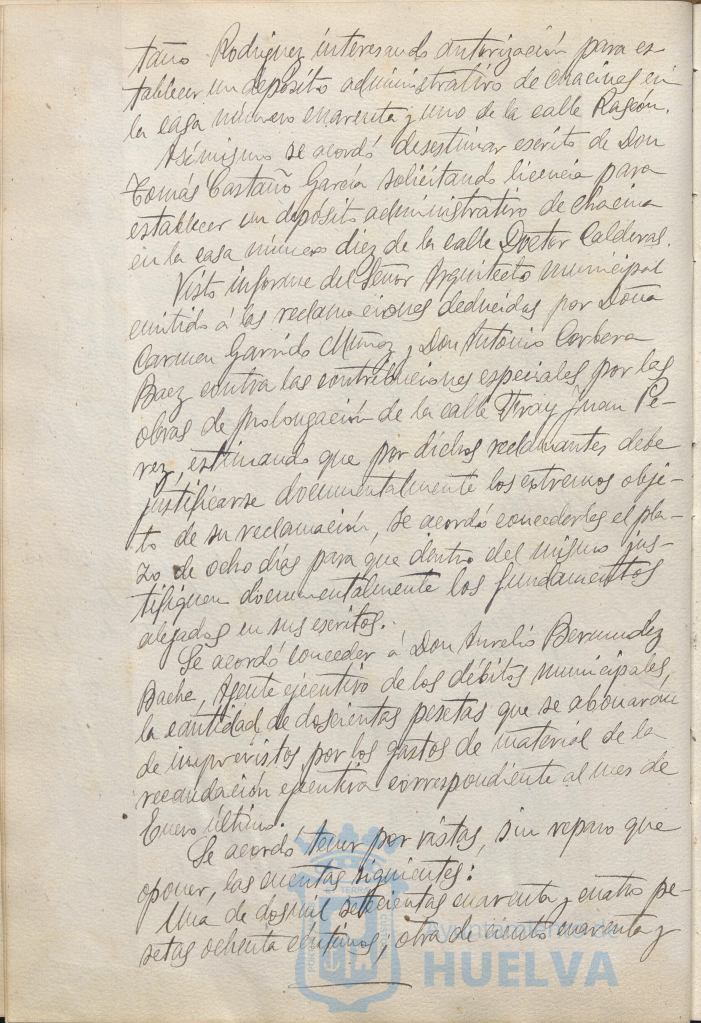 taño Rodriguez interesando autorización para es
tablecer un depósito administrativo de chacinas en
la casa número cuarenta y uno de la calle Rascón.
Asimismo se acordó desestimar escrito de Don
Tomás Castaño García solicitando licencia para
establecer un depósito administrativo de chacina
en la casa número diez de la calle Doctor Calderas.
Visto informe del Señor Arquitecto municipal
emitido á las reclamaciones deducidas por Doña
Carmen Garrido Muñoz y Don Antonio Corbera
Baez contra las contribuciones especiales por las
obras de prolongación de la calle Fray Juan Pé-
rez, estimando que por dichos reclamantes debe
justificarse documentalmente los extremos obje-
to de su reclamación, se acordó concederles el pla-
zo de ocho días para que dentro del mismo jus-
tifiquen documentalmente los fundamentos
alegados en sus escritos.
Se acordó conceder á Don Aurelio Bermudez
Bache, Agente ejecutivo de los débitos municipales,
la cantidad de doscientas pesetas que se abonarán
de imprevistos por los gastos de material de la
recaudación ejecutiva correspondiente al mes de
Enero último.
Se acordó tener por vistas, sin reparo que
oponer, las cuentas siguientes:
Una de dosmil setecientas cuarenta y cuatro pe-
setas ochenta céntimos; otra de ciento cuarenta y
Ayuntamiento de
HUELVA